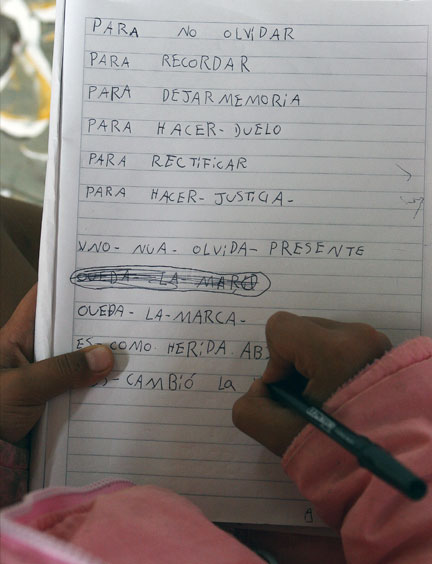 PARA NO OLVIDAR
PARA RECORDAR
PARA DEJAR MEMORIA
PARA HACER- DUELO
PARA RECTIFICAR
PARA HACER- JUSTICIA-
UNO- NUA- OLVIDA- PRESENTE
QUEDA- LA- MARCA
QUEDA- LA-MARCA-
ES- COMO. HERIDA. AB
CAMBIÓ LA